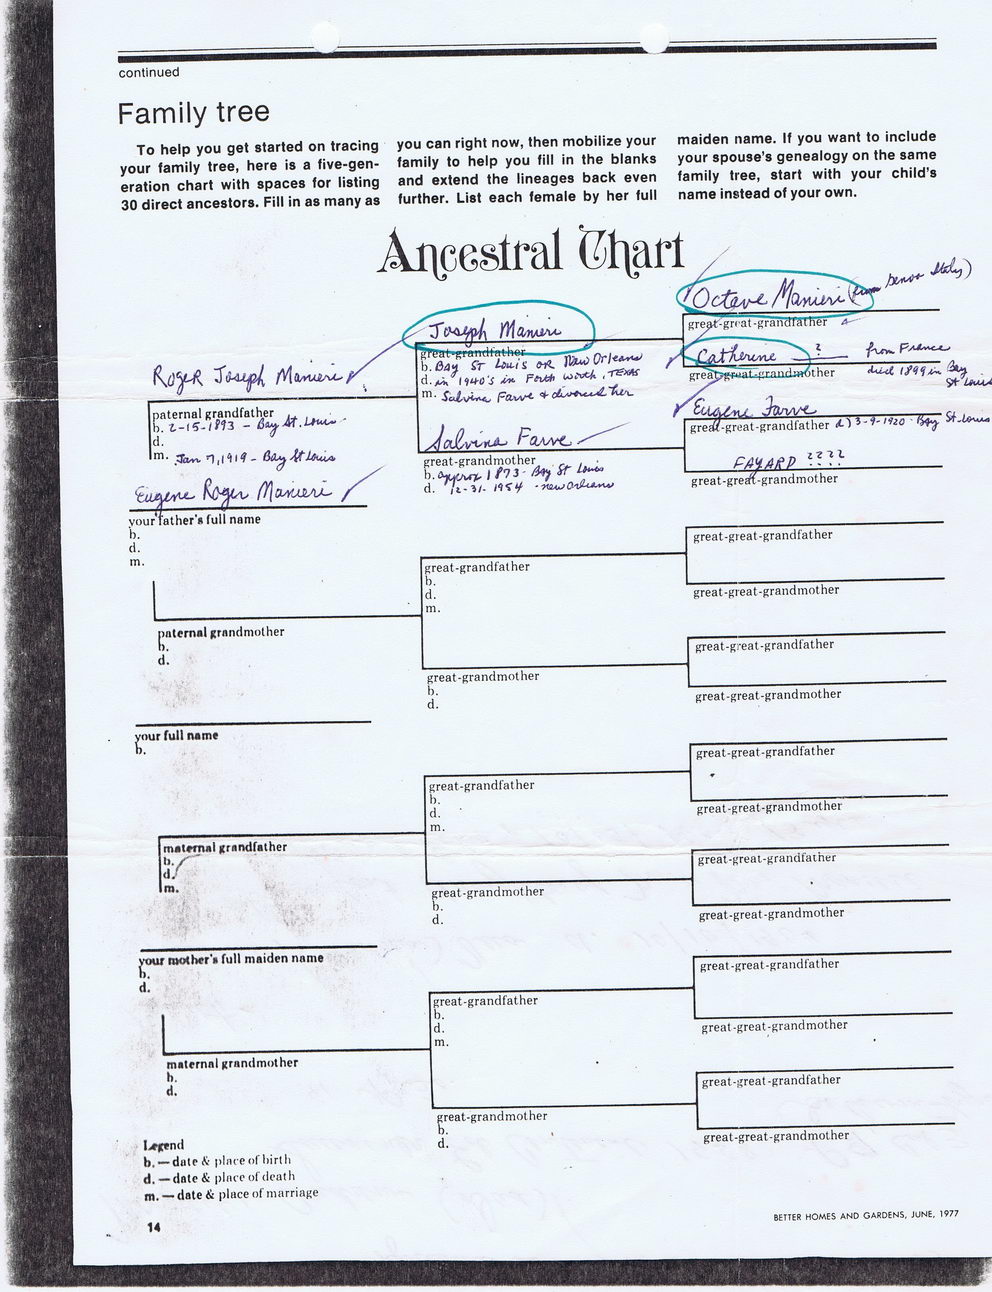 continued
Family tree
To help you get started on tracing
your family tree, here is a five-gen-
eration chart with spaces for listing
30 direct ancestors. Fill in as many as
you can right now, then mobilize your
family to help you fill in the blanks
and extend the lineages back even
further. List each female by her full
maiden name. If you want to include
your spouse's genealogy on the same
family tree, start with your child's
name instead of your own.
Ancestral Chart
Octave Manieri (from Italy)
great-great-grandfather
Catherine ? from France
great-great-grandmother died 1899 in Bay
St Louis
Joseph Manieri
great-grandfather
b. Bay St Louis or New Orleans
d. in 1940's in Forth Worth, Texas
m. Salvina Farve & divorced her
Eugene Farve
great-great-grandfather d) 3-9-1920 - Bay St. Louis
FAYARD ????
great-great-grandmother
Salvina Farve
great-grandmother
b. approx 1873 - Bay St Louis
d. 12-31-1954 - new Orleans
Roger Joseph Manieri
paternal grandfather
b. 2-15-1893 - Bay St. Louis
d.
m. Jan 7, 1919 - Bay St Louis
Eugene Roger Manieri
your father's full name
b.
d.
m.
great-grandfather
b.
d.
m.
great-great-grandfather
great-great-grandmother
paternal grandmother
b.
d.
great-grandmother
b.
d.
great-great-grandfather
great-great-grandmother
your full name
b.
great-grandfather
b.
d.
m.
great-great-grandfather
great-great-grandmother
maternal grandfather
b.
d.
m.
great-grandmother
b.
d.
great-great-grandfather
great-great-grandmother
your mother's full maiden name
b.
d.
great-grandfather
b.
d.
m.
great-great-grandfather
great-great-grandmother
maternal grandmother
b.
d.
great-grandmother
b.
d.
great-great-grandfather
great-great-grandmother
Legend
b. — date & place of birth
d. — date & place of death
m. — date & place of marriage
14
BETTER HOMES AND GARDENS, JUNE, 1977